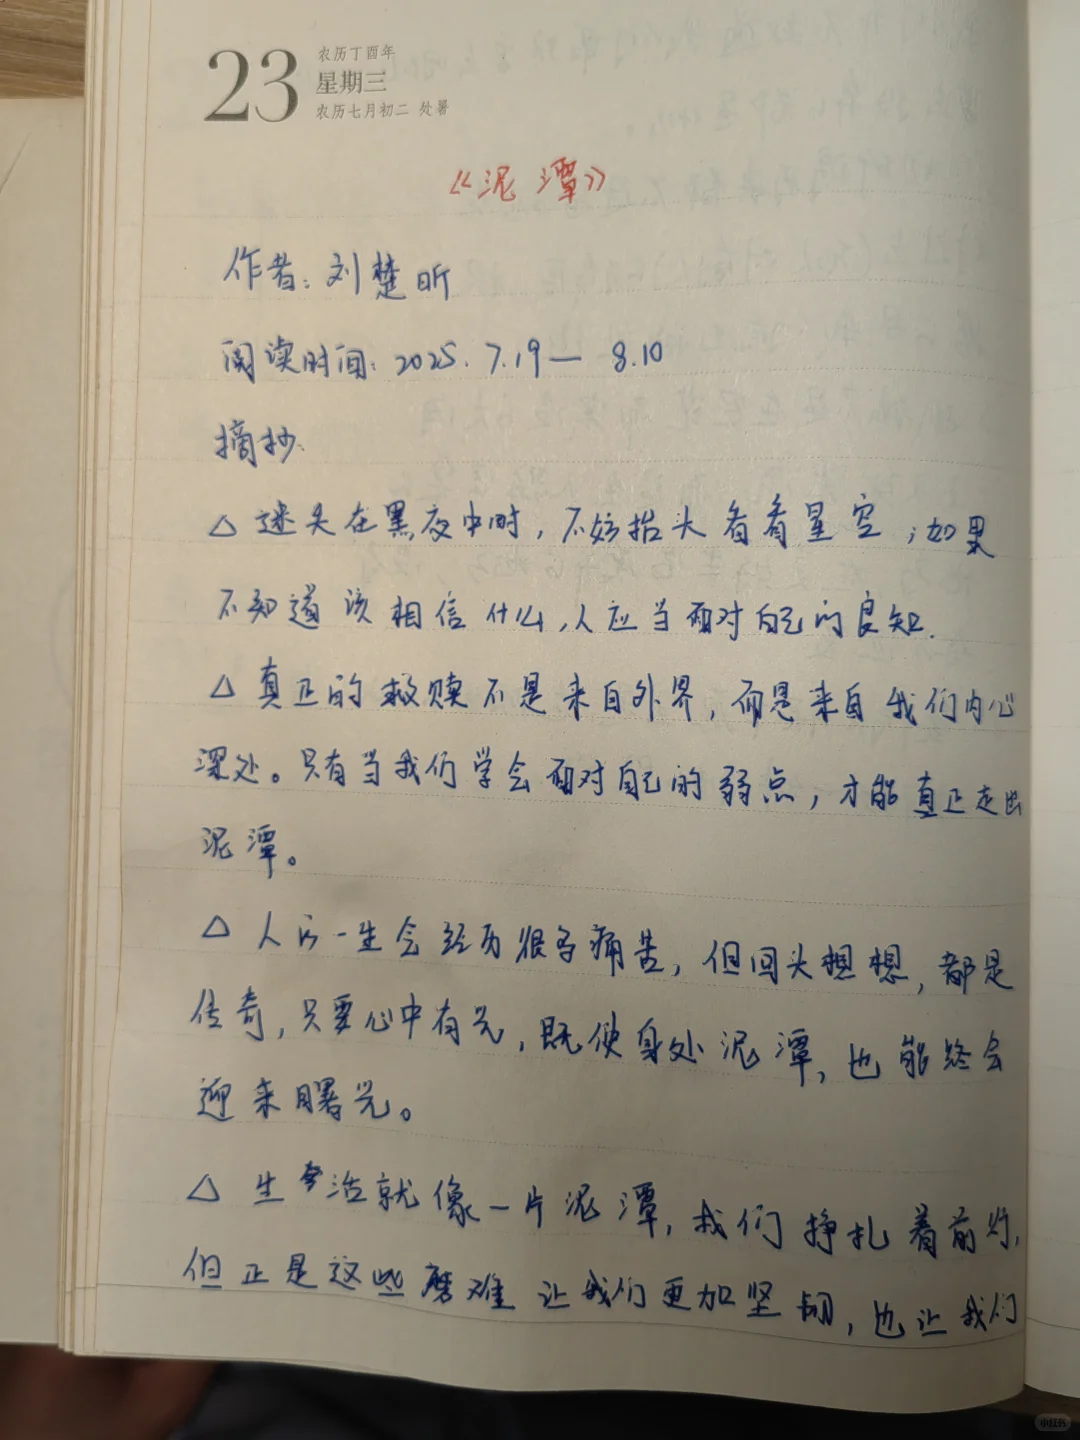 23
农历丁酉年
星期三
农历七月初二 处暑
《泥潭》
作者：刘楚昕
阅读时间：2025.7.19— 8.10
摘抄：
△ 迷失在黑夜中时，不妨抬头看看星空；如果
不知道该相信什么，人应当面对自己的良知.
△ 真正的救赎不是来自外界，而是来自我们内心
深处。只有当我们学会面对自己的弱点，才能真正走出
泥潭。
△ 人的一生会经历很多痛苦，但回头想想，都是
传奇，只要心中有光，既使身处泥潭，也能终会
迎来曙光。
△ 生活就像一片泥潭，我们挣扎着前行，
但正是这些磨难让我们更加坚韧，也让我们
小红书